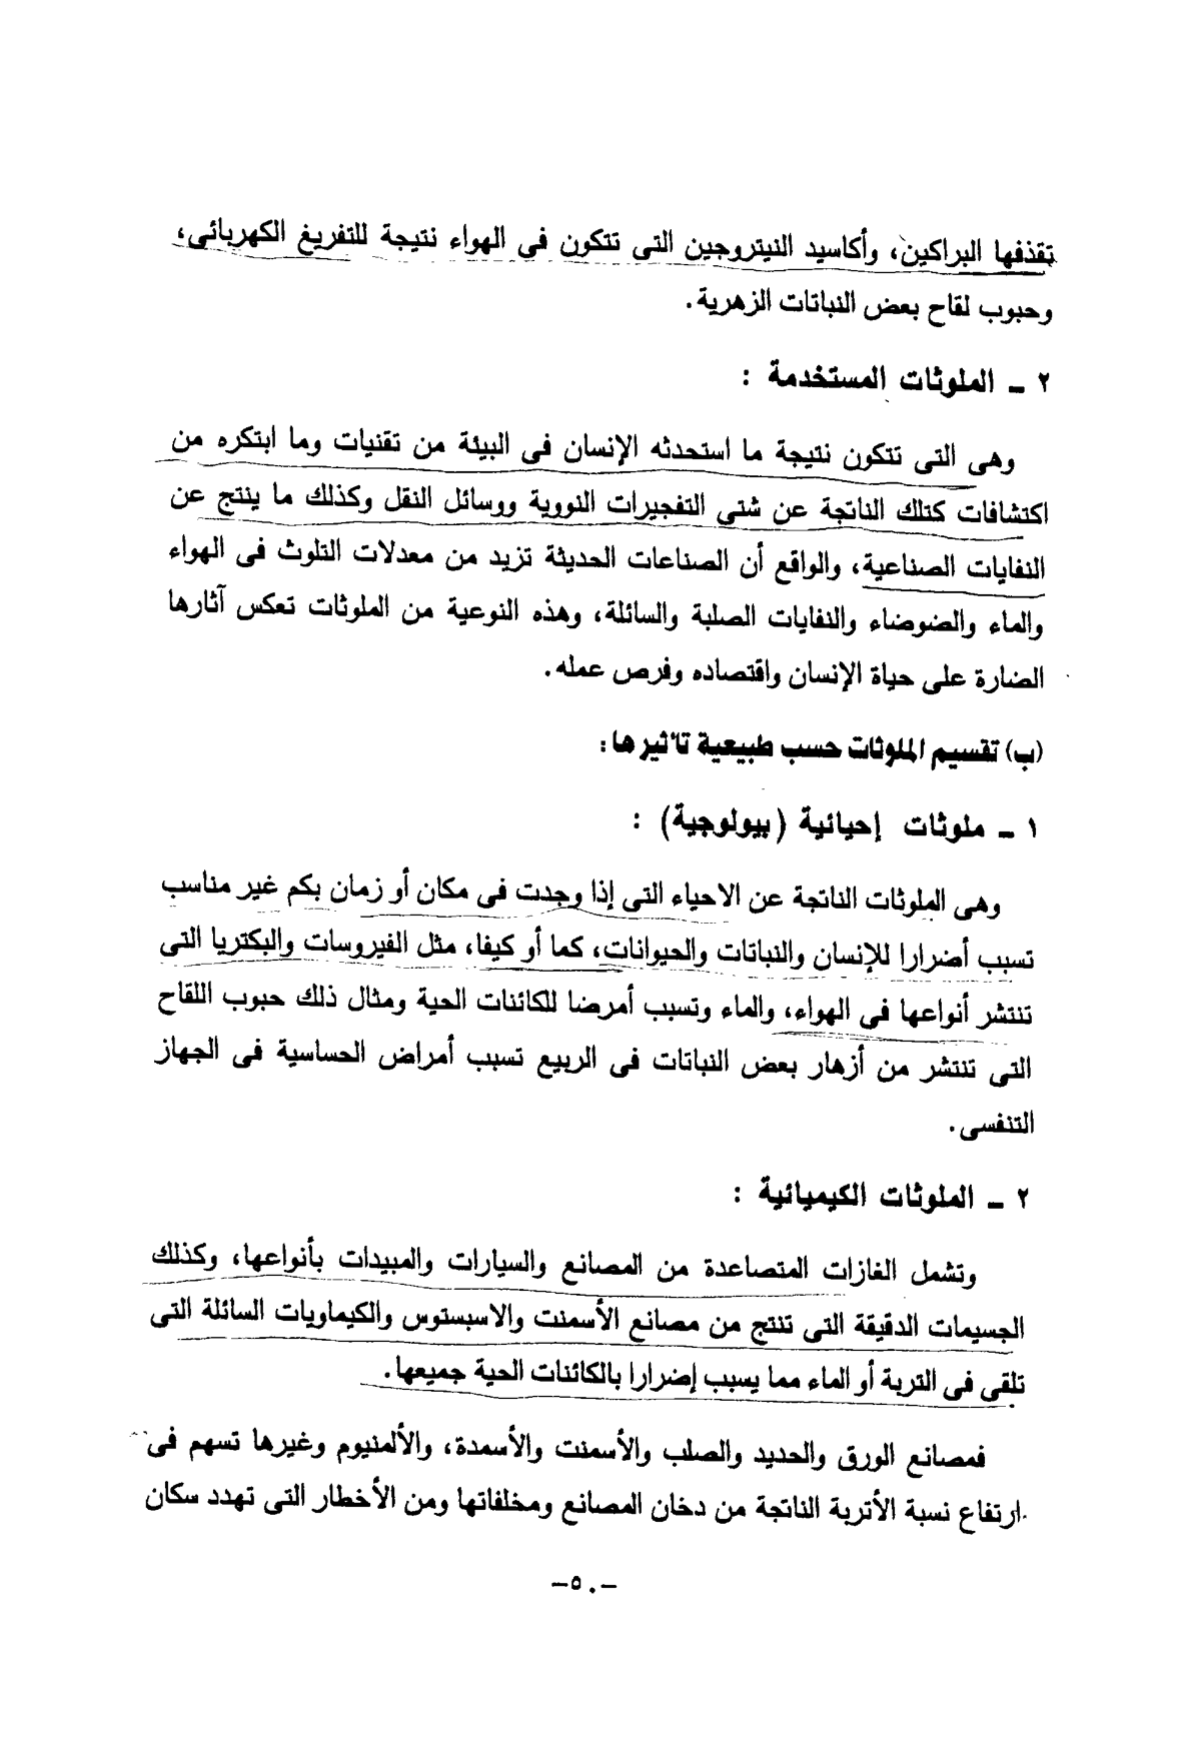 تقذفها البراكين، وأكاسيد النيتروجين التى تتكون فى الهواء نتيجة للتفريغ الكهربائى،
وحبوب لقاح بعض النباتات الزهرية.
٢ ــ الملوثات المستخدمة :
وهى التى تتكون نتيجة ما استحدثه الإنسان فى البيئة من تقنيات وما ابتكره من
اكتشافات كتلك الناتجة عن شتى التفجيرات النووية ووسائل النقل وكذلك ما ينتج عن
النفايات الصناعية، والواقع أن الصناعات الحديثة تزيد من معدلات التلوث فى الهواء
والماء والضوضاء والنفايات الصلبة والسائلة، وهذه النوعية من الملوثات تعكس آثارها
الضارة على حياة الإنسان واقتصاده وفرص عمله.
(ب) تقسيم الملوثات حسب طبيعية تأثيرها:
١ ــ ملوثات إحيائية (بيولوجية) :
وهى الملوثات الناتجة عن الاحياء التى إذا وجدت فى مكان أو زمان بكم غير مناسب
تسبب أضرارا للإنسان والنباتات والحيوانات، كما أو كيفا، مثل الفيروسات والبكتريا التى
تنتشر أنواعها فى الهواء، والماء وتسبب أمرضا للكائنات الحية ومثال ذلك حبوب اللقاح
التى تنتشر من أزهار بعض النباتات فى الربيع تسبب أمراض الحساسية فى الجهاز
التنفسى.
٢ ــ الملوثات الكيميائية :
وتشمل الغازات المتصاعدة من المصانع والسيارات والمبيدات بأنواعها، وكذلك
الجسيمات الدقيقة التى تنتج من مصانع الأسمنت والاسبستوس والكيماويات السائلة التى
تلقى فى التربة أو الماء مما يسبب إضرارا بالكائنات الحية جميعها.
فمصانع الورق والحديد والصلب والأسمنت والأسمدة، والألمنيوم وغيرها تسهم فى
ارتفاع نسبة الأتربة الناتجة من دخان المصانع ومخلفاتها ومن الأخطار التى تهدد سكان
–٥٠–